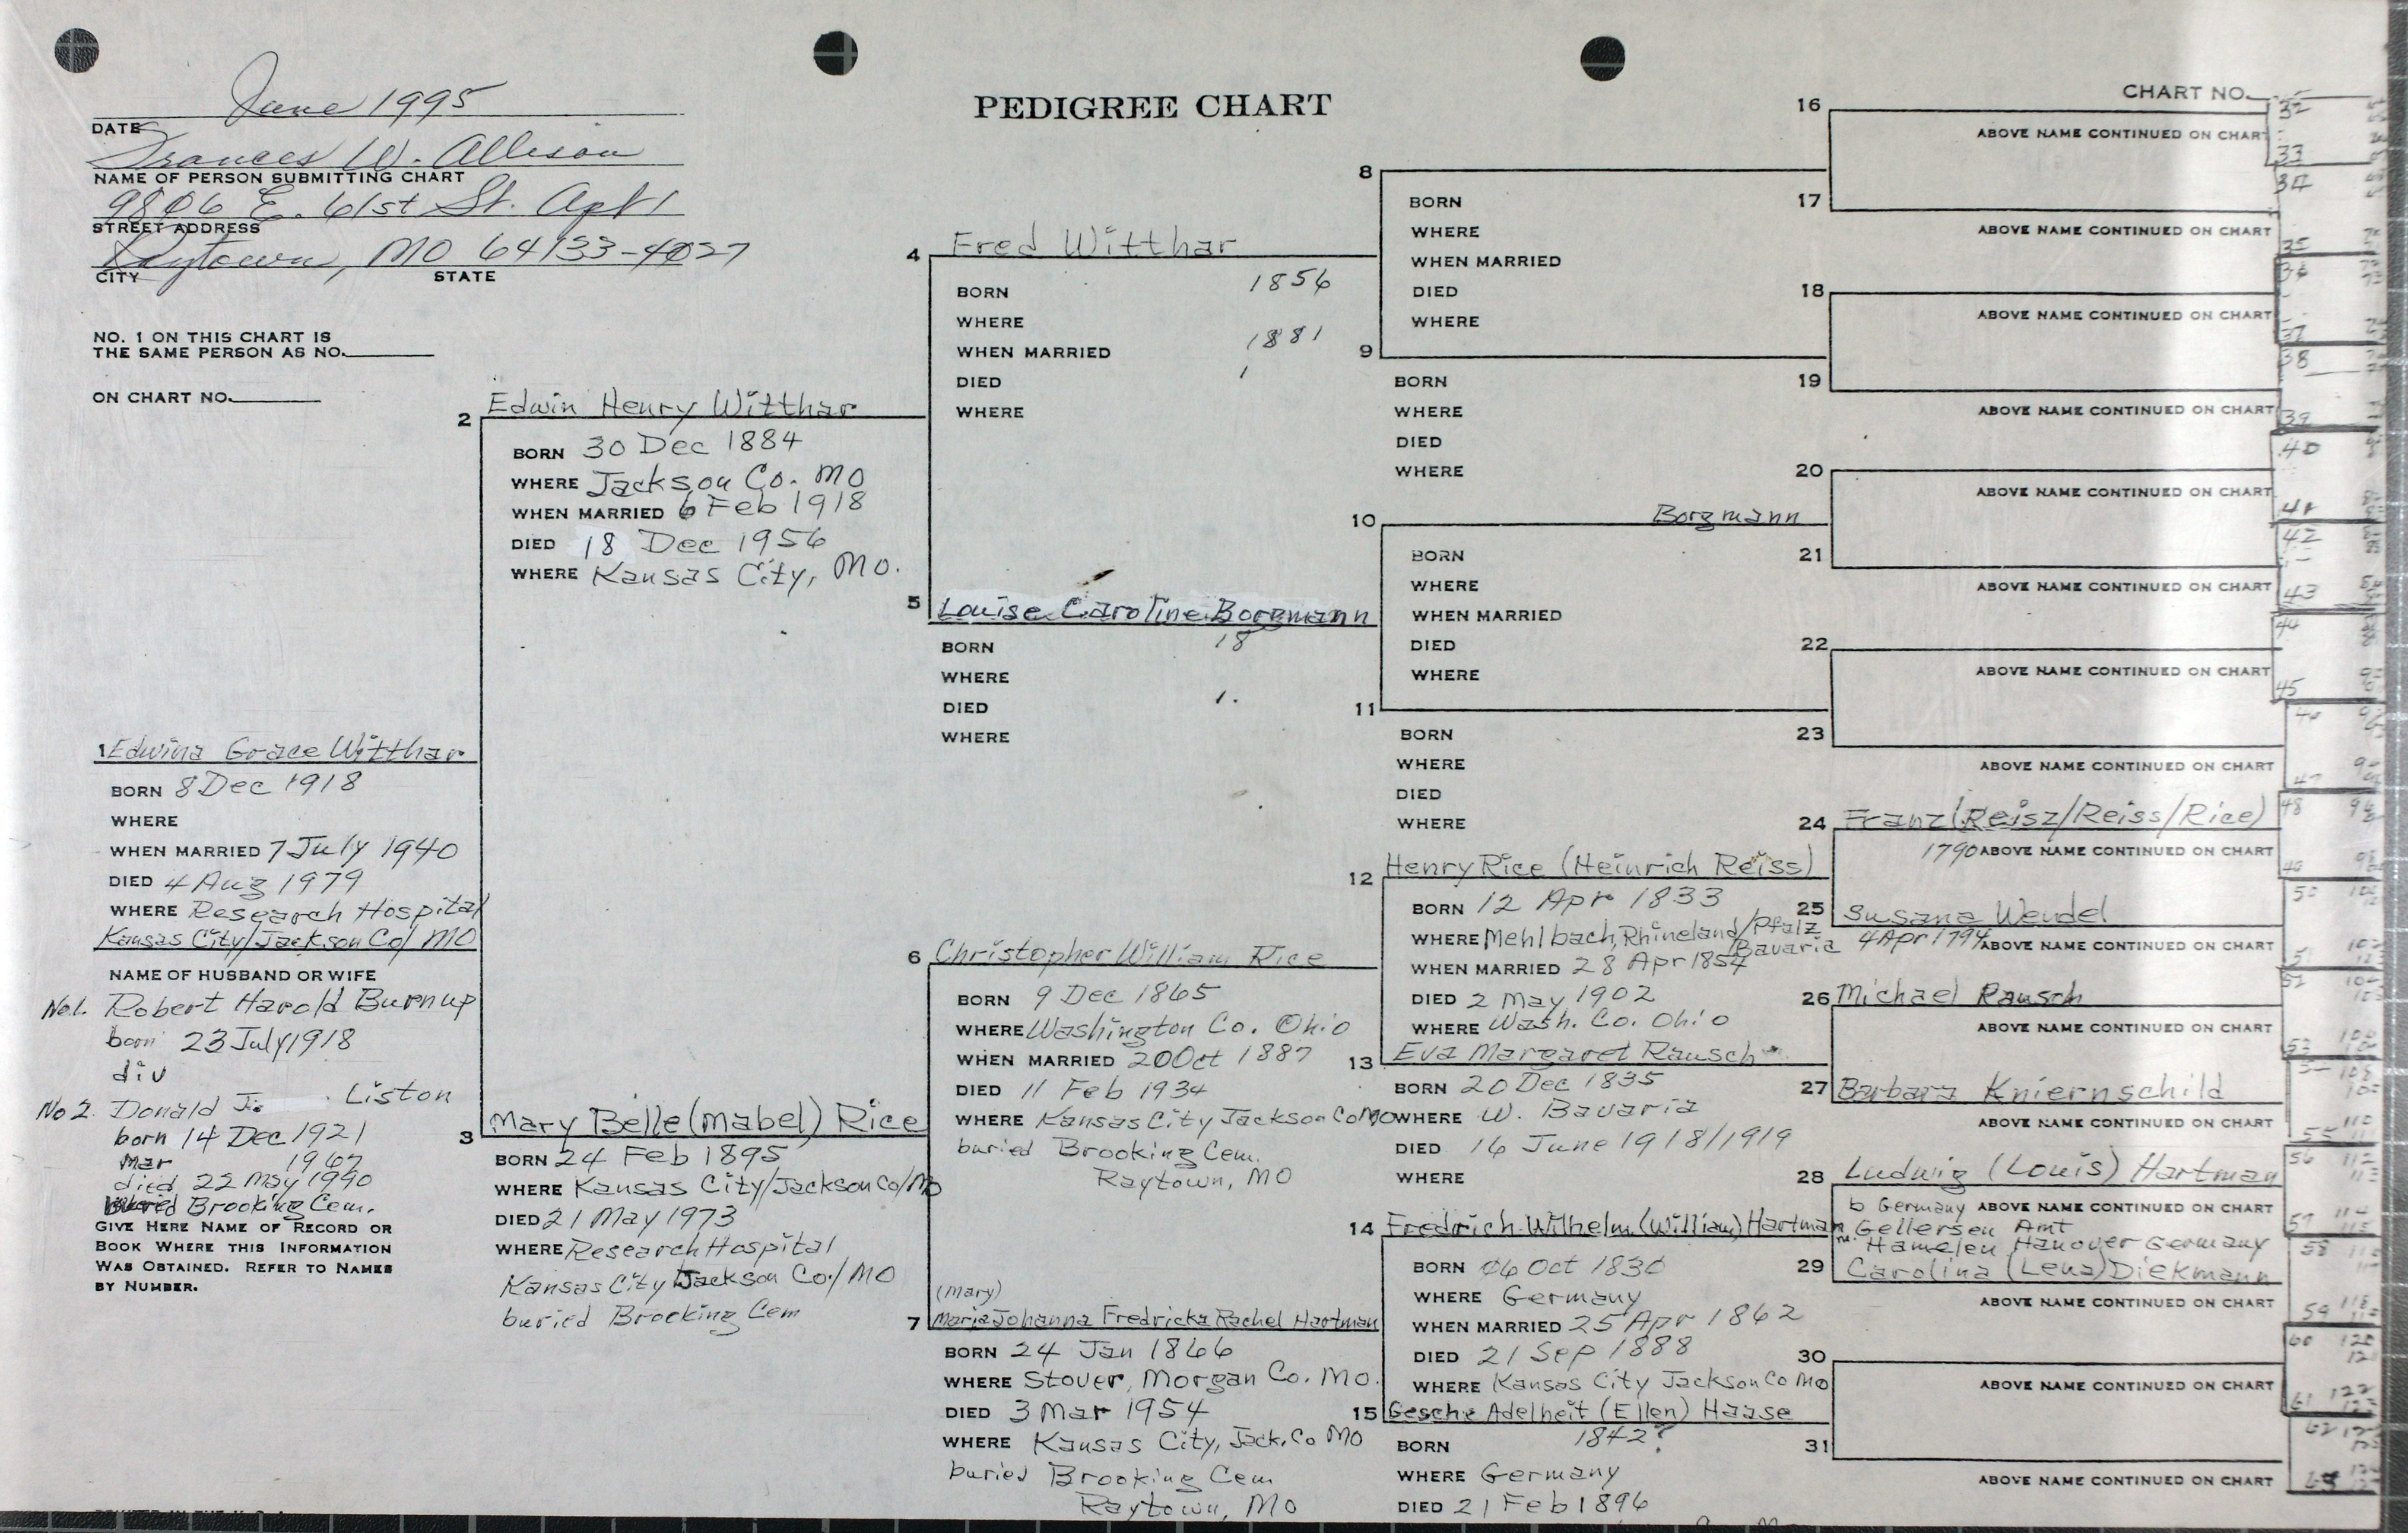 PEDIGREE CHART
CHART NO.
June 1995
DATE
Frances W. Allison
NAME OF PERSON SUBMITTING CHART
9806 E. 61st St. Apt 1
STREET ADDRESS
Raytown, MO 64133-4027
CITY STATE
NO. 1 ON THIS CHART IS
THE SAME PERSON AS NO.
ON CHART NO.
1 Edwina Grace Witthar
BORN 8 Dec 1918
WHERE
WHEN MARRIED 7 July 1940
DIED 4 Aug 1979
WHERE Research Hospital
Kansas City/Jackson Co/ MO
NAME OF HUSBAND OR WIFE
No1. Robert Harold Burnup
born 23 July 1918
div
No 2. Donald J. Liston
born 14 Dec 1921
Mar 1967
died 22 May 1990
buried Brooking Cem.
GIVE HERE NAME OF RECORD OR
BOOK WHERE THIS INFORMATION
WAS OBTAINED. REFER TO NAMES
BY NUMBER.
2 Edwin Henry Witthar
BORN 30 Dec 1884
WHERE Jackson Co. MO
WHEN MARRIED 6 Feb 1918
DIED 18 Dec 1956
WHERE Kansas City, Mo.
3 Mary Belle (Mabel) Rice
BORN 24 Feb 1895
WHERE Kansas City/Jackson Co/Mo
DIED 21 May 1973
WHERE Research Hospital
Kansas City Jackson Co./ MO
buried Brooking Cem
4 Fred Witthar
BORN 1856
WHERE
WHEN MARRIED 1881
DIED
WHERE
5 Louise Caroline Borgmann
BORN 18
WHERE
DIED
WHERE
6 Christopher William Rice
BORN 9 Dec 1865
WHERE Washington Co. Ohio
WHEN MARRIED 20 Oct 1887
DIED 11 Feb 1934
WHERE Kansas City Jackson Co Mo
buried Brooking Cem.
Raytown, MO
(Mary)
7 Maria Johanna Fredricka Rachel Hartman
BORN 24 Jan 1866
WHERE Stover, Morgan Co. Mo.
DIED 3 Mar 1954
WHERE Kansas City, Jack. Co MO
buried Brooking Cem
Raytown, MO
8
BORN
WHERE
WHEN MARRIED
DIED
WHERE
9
BORN
WHERE
DIED
WHERE
10 Borgmann
BORN
WHERE
WHEN MARRIED
DIED
WHERE
11
BORN
WHERE
DIED
WHERE
12 Henry Rice (Heinrich Reiss)
BORN 12 Apr 1833
WHERE Mehlbach, Rhineland/Pfalz
/Bavaria
WHEN MARRIED 28 Apr 1854
DIED 2 May 1902
WHERE Wash. Co. Ohio
13 Eva Margaret Rausch
BORN 20 Dec 1835
WHERE W. Bavaria
DIED 16 June 1918/1919
WHERE
14 Fredrich Wilhelm (William) Hartman
BORN 06 Oct 1830
WHERE Germany
WHEN MARRIED 25 Apr 1862
DIED 21 Sep 1888
WHERE Kansas City Jackson Co Mo
15 Gesche Adelheit (Ellen) Haase
BORN 1842?
WHERE Germany
DIED 21 Feb 1896
16
ABOVE NAME CONTINUED ON CHART
17
ABOVE NAME CONTINUED ON CHART
18
ABOVE NAME CONTINUED ON CHART
19
ABOVE NAME CONTINUED ON CHART
20
ABOVE NAME CONTINUED ON CHART
21
ABOVE NAME CONTINUED ON CHART
22
ABOVE NAME CONTINUED ON CHART
23
ABOVE NAME CONTINUED ON CHART
24 Franz (Reisz/Reiss/Rice)
1790 ABOVE NAME CONTINUED ON CHART
25 Susana Wendel
4 Apr 1794 ABOVE NAME CONTINUED ON CHART
26 Michael Rausch
ABOVE NAME CONTINUED ON CHART
27 Barbara Kniernschild
ABOVE NAME CONTINUED ON CHART
28 Ludwig (Louis) Hartman
b Germany ABOVE NAME CONTINUED ON CHART
Gellersen Amt
m. Hamelen Hanover Germany
29 Carolina (Lena) Diekmann
ABOVE NAME CONTINUED ON CHART
30
ABOVE NAME CONTINUED ON CHART
31
ABOVE NAME CONTINUED ON CHART
32
33
34
35
36
37
38
39
40
41
42
43
44
45
46
47
48
49
50
51
52
53
55
56
57
58
59
60
61
62